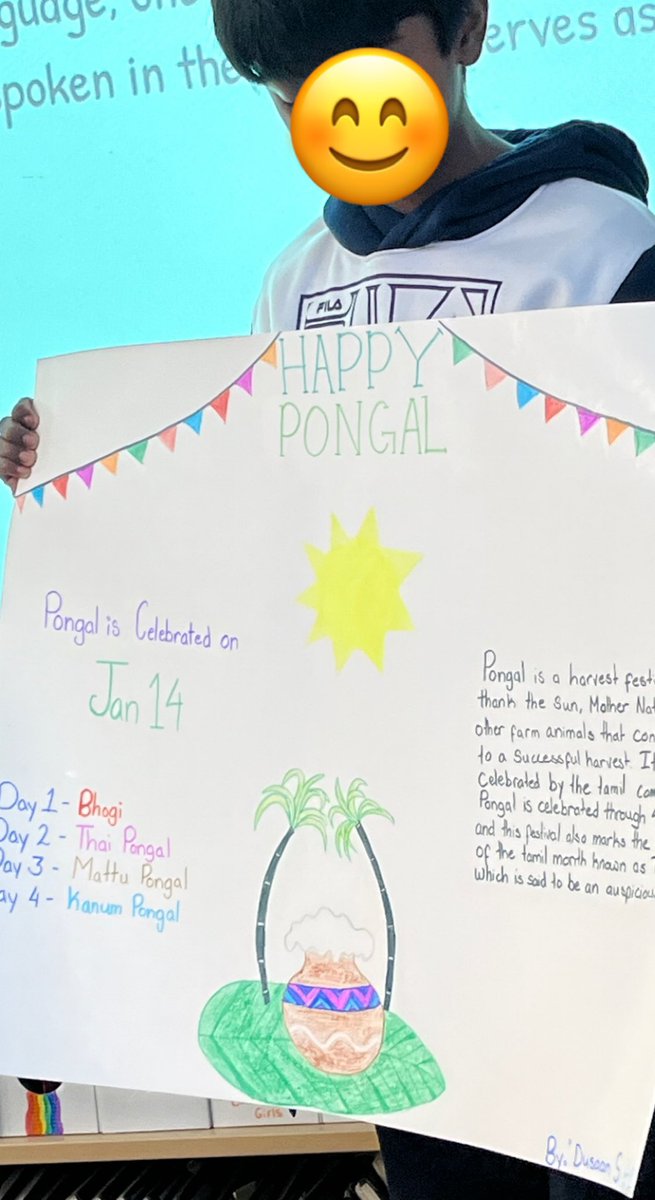 spoken in the erves as
FILA
HAPPY
PONGAL
Pongal is Celebrated on
Jan 14
Day 1 - Bhogi
Day 2 - Thai Pongal
Day 3 - Mattu Pongal
ay 4 - Kanum Pongal
Pongal is a harvest festi
thank the Sun, Mother Nat
other farm animals that con
to a Successful harvest. It
Celebrated by the tamil com
Pongal is celebrated through 4
and this festival also marks the
of the tamil month known as T
which is said to be an auspiciou
Girls
By: Dusaan S